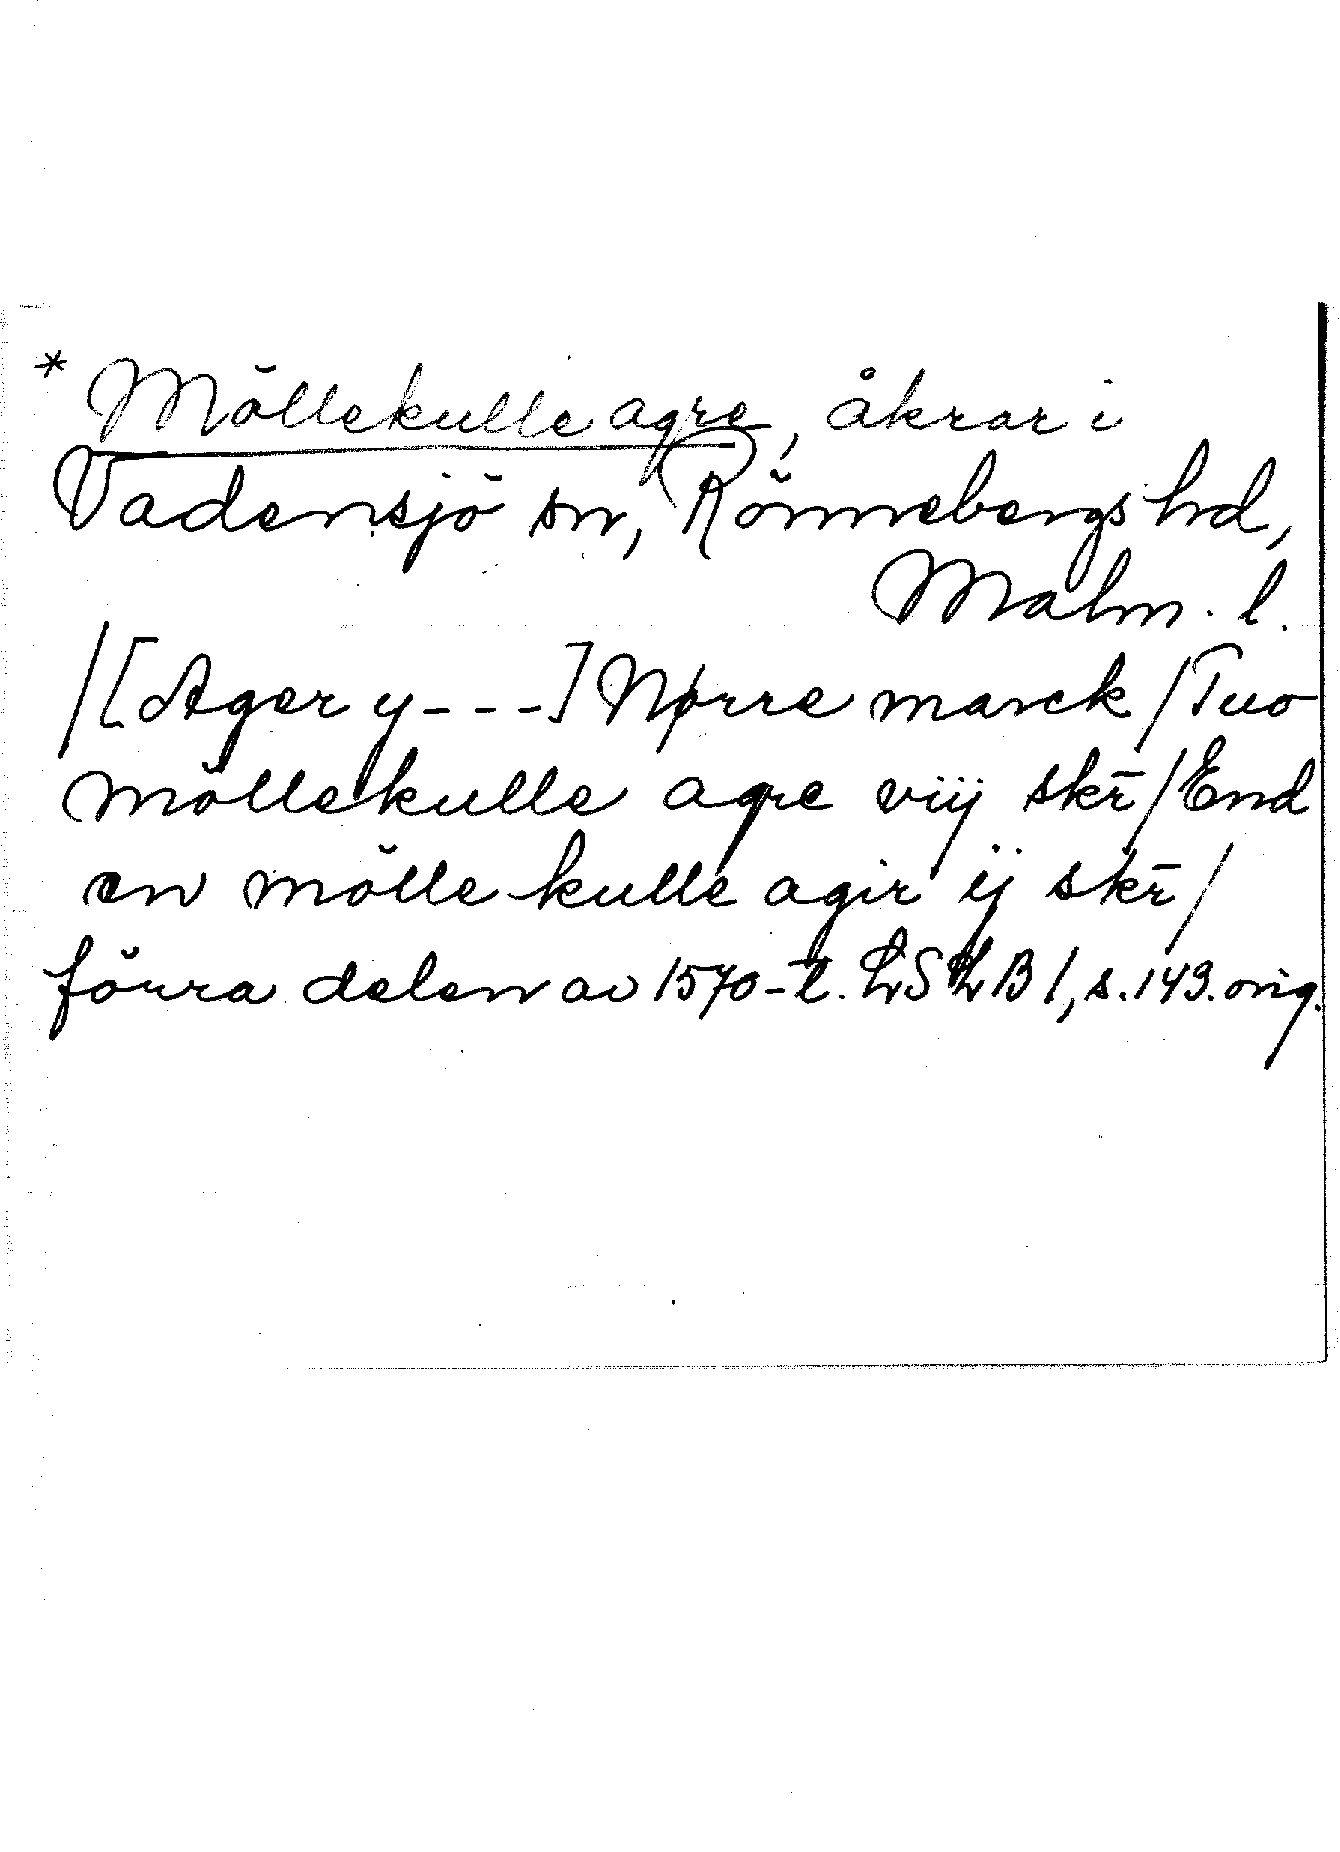 * Möllekulle agre, åkrar i
Vadensjö sn, Rönnebergs hd,
Malm. l.
/[Ager y---] Nørre marck/Tuo
möllekulle agre viij skr̄/End
en mölle kulle agir ij skr̄/
förra delen av 1570-t. LSLB 1, s. 143. orig.